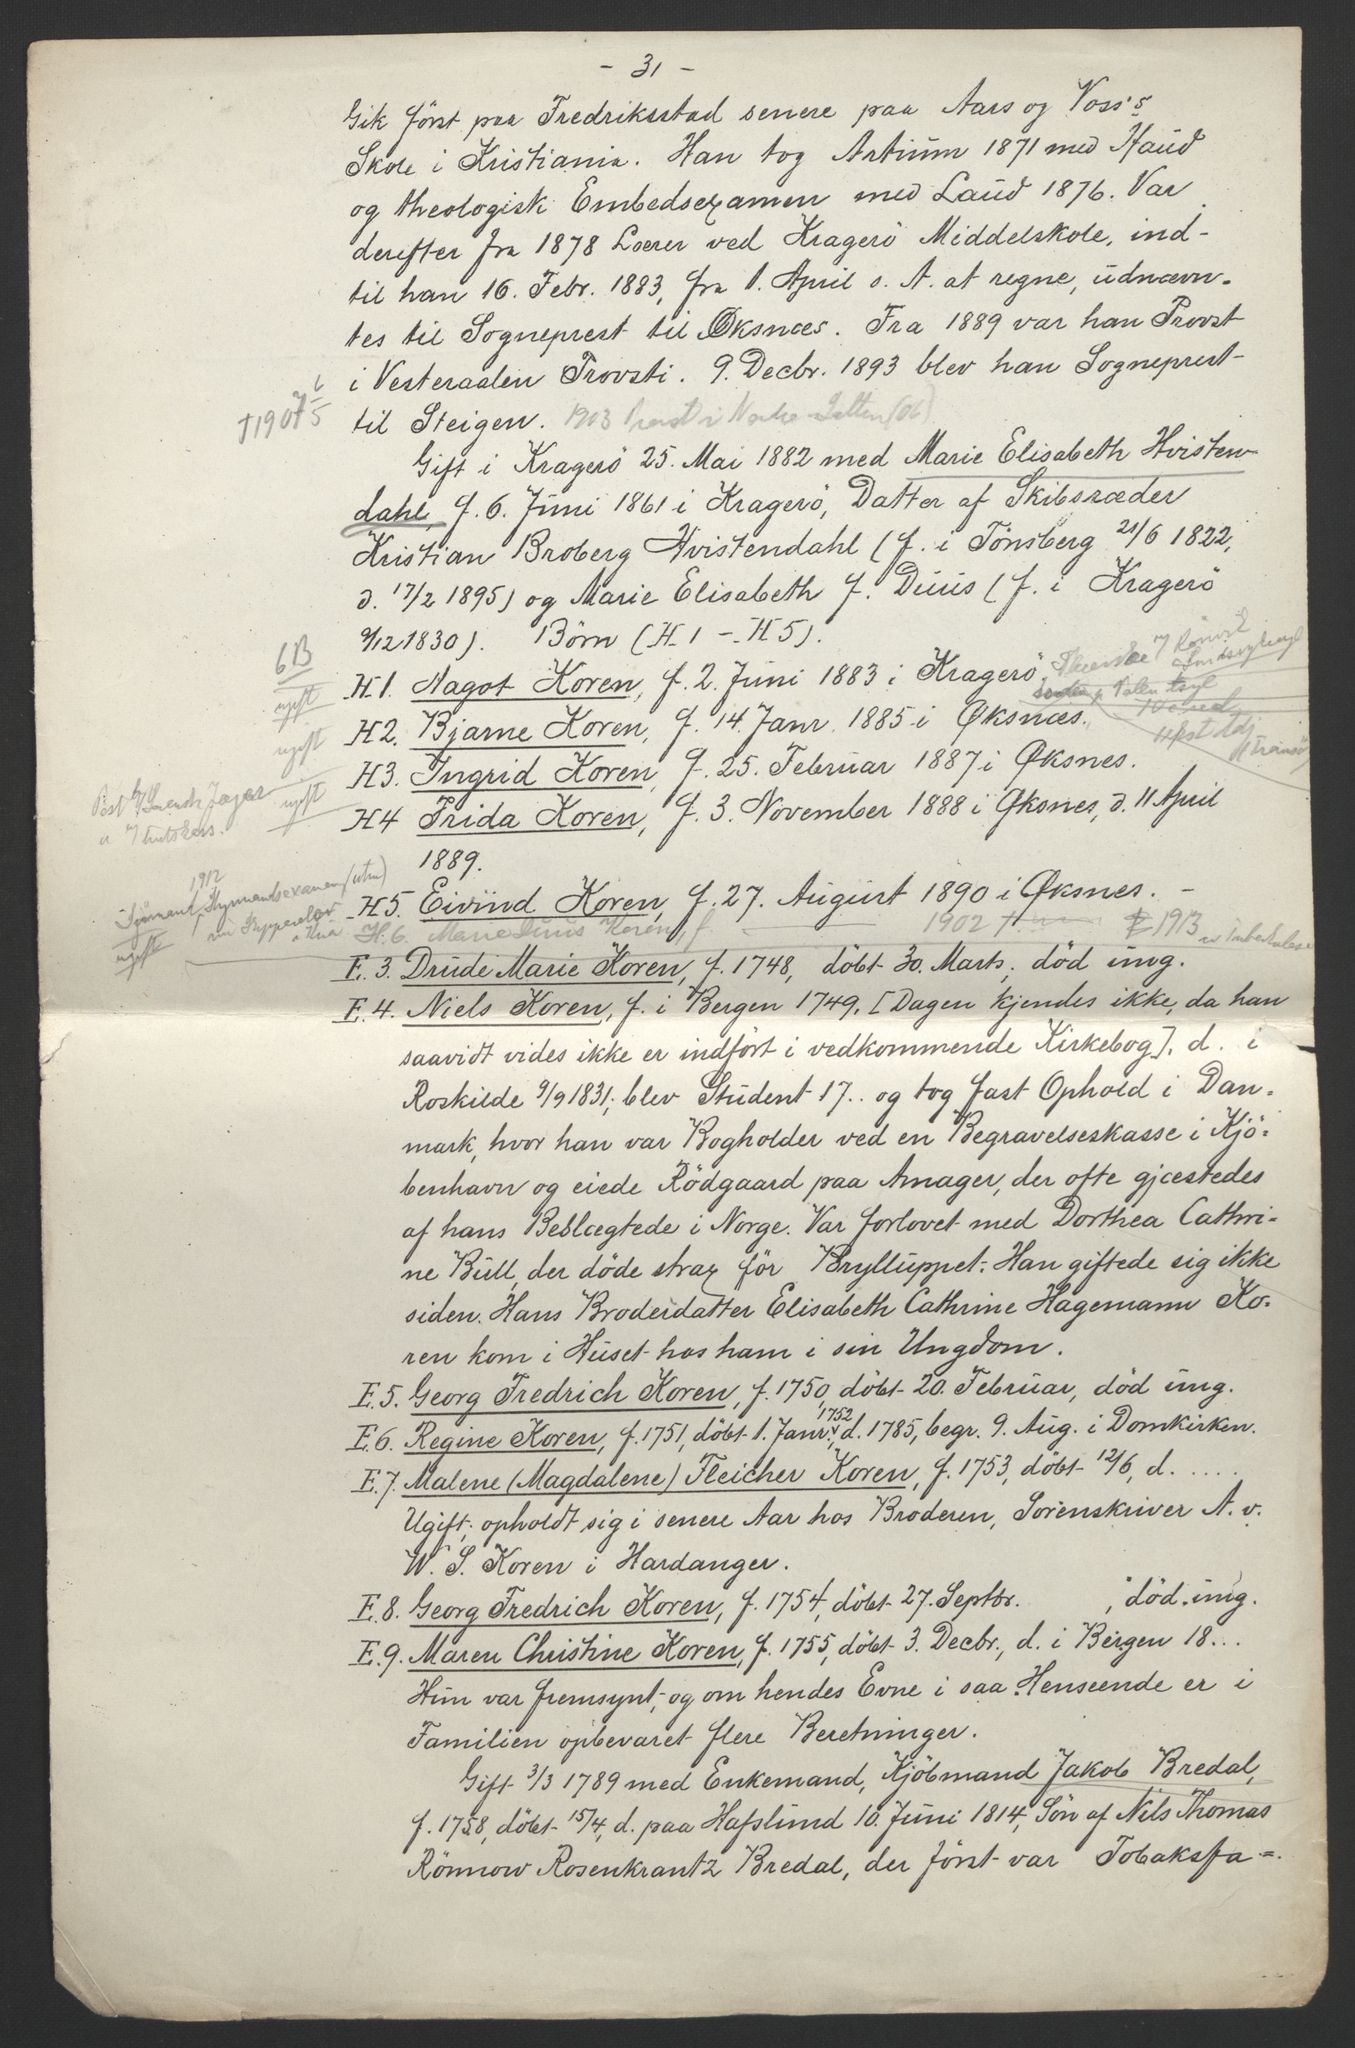 - 31 -
Gik först paa Fredriksstad senere paa Aars og Voss's
Skole i Kristiania. Han tog Artium 1871 med Haud
og theologisk Embedsexamen med Laud 1876. Var
derefter fra 1878 Lærer ved Kragerö Middelskole, ind-
til han 16. Febr. 1883, fra 1. April s. A. at regne, udnævn-
tes til Sogneprest til Øksnæs. Fra 1889 var han Provst
i Vesteraalen Provsti. 9. Decbr. 1893 blev han Sogneprest
til Steigen. 1903
†1907
Gift i Kragerö 25. Mai 1882 med Marie Elisabeth Hvisten-
dahl, f. 6. Juni 1861 i Kragerö, Datter af Skibsræder
Kristian Broberg Hvistendahl (f. i Tönsberg 21/6 1822,
d. 17/2 1895) og Marie Elisabeth f. Duus (f. i Kragerö
9/12 1830). Börn (H.1 - H5).
6B
ugift
H1. Nagot Koren, f. 2. Juni 1883 i Kragerö.
ugift
H2. Bjarne Koren, f. 14. Janr. 1885 i Øksnæs.
H3. Ingrid Koren, f. 25. Februar 1887 i Øksnes.
ugift
H4 Frida Koren, f. 3. November 1888 i Øksnes, d. 11 April
1889.
1912
H5. Eivind Koren, f. 27. August 1890 i Øksnes. -
ugift
H.6. Marie Duus Koren, f. 1902 † 1913
E.3. Drude Marie Koren, f. 1748, döbt 30. Marts, död ung.
E.4. Niels Koren, f. i Bergen 1749. [Dagen kjendes ikke, da han
saavidt vides ikke er indfört i vedkommende Kirkebog]. d. i
Roskilde 9/9 1831; blev Student 17.. og tog fast Ophold i Dan-
mark, hvor han var Bogholder ved en Begravelseskasse i Kjö-
benhavn og eiede Rödgaard paa Amager, der ofte gjæstedes
af hans Beslægtede i Norge. Var forlovet med Dorthea Cathri-
ne Bull, der döde strax för Brylluppet. Han giftede sig ikke
siden. Hans Broderdatter Elisabeth Cathrine Hagemann Ko-
ren kom i Huset hos ham i sin Ungdom.
E.5. Georg Fredrich Koren, f. 1750, döbt 20. Februar, död ung.
E.6. Regine Koren, f. 1751, döbt 1. Janr. 1752, d. 1785, begr. 9. Aug. i Domkirken.
E.7. Malene (Magdalene) Fleicher Koren, f. 1753, döbt 12/6, d. ....
Ugift; opholdt sig i senere Aar hos Broderen, Sorenskriver A. v.
W. S. Koren i Hardanger.
E.8. Georg Fredrich Koren, f. 1754, döbt 27. Septbr. , död ung.
E.9. Maren Christine Koren, f. 1755, döbt 3. Decbr., d. i Bergen 18...
Hun var fremsynt, og om hendes Evne i saa Henseende er i
Familien opbevaret flere Beretninger.
Gift 3/3 1789 med Enkemand, Kjöbmand Jakob Bredal,
f. 1758, döbt 15/4, d. paa Hafslund 10. Juni 1814, Sön af Nils Thomas
Rönnow Rosenkrantz Bredal, der först var Tobaksfa-